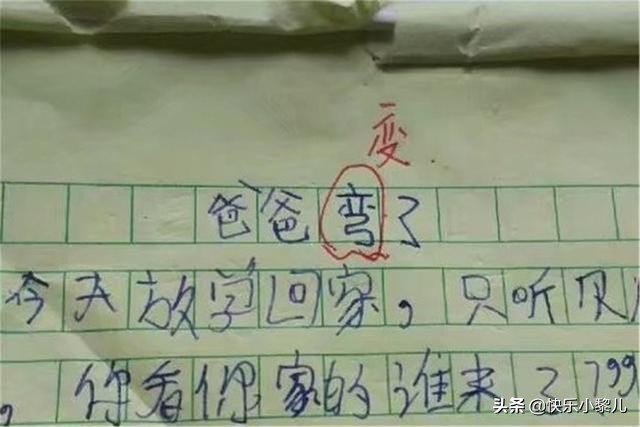 变
爸爸弯了
今天放学回家，只听见
，你看你家的谁来了？99
头条 @快乐小黎儿